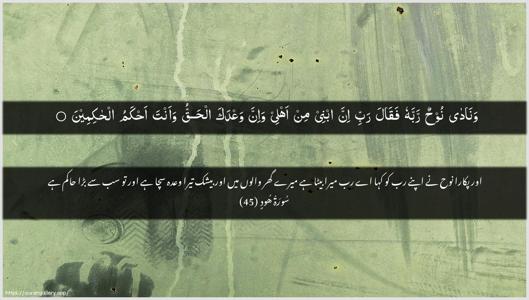 وَنَادٰى نُوْحٌ رَّبَّهٗ فَقَالَ رَبِّ اِنَّ ابْنِىْ مِنْ اَهْلِىْ وَاِنَّ وَعْدَكَ الْحَـقُّ وَاَنْتَ اَحْكَمُ الْحٰكِمِيْنَ ○
اور پکارا نوح نے اپنے رب کو کہا اے رب میرا بیٹا ہے میرے گھر والوں میں اور بیشک تیرا وعدہ سچا ہے اور تو سب سے بڑا حاکم ہے
سُوْرَةُ هُوْدٍ (45)
https://qurangallery.app/